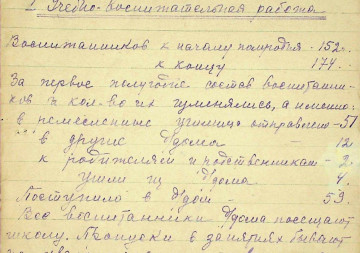 1. Учебно-воспитательная работа
Воспитанников к началу полугодия - 152.
к концу 174.
За первое полугодие состав воспитан-
ников и кол-во их изменялись, а именно:
в ремесленные училища отправлено - 51
в другие д/дома 12
к родителям и родственникам - 2.
ушли из д/дома 4.
Поступило в д/дом - 53.
Все воспитанники д/дома посещают
школу. Пропуски в занятиях бывают